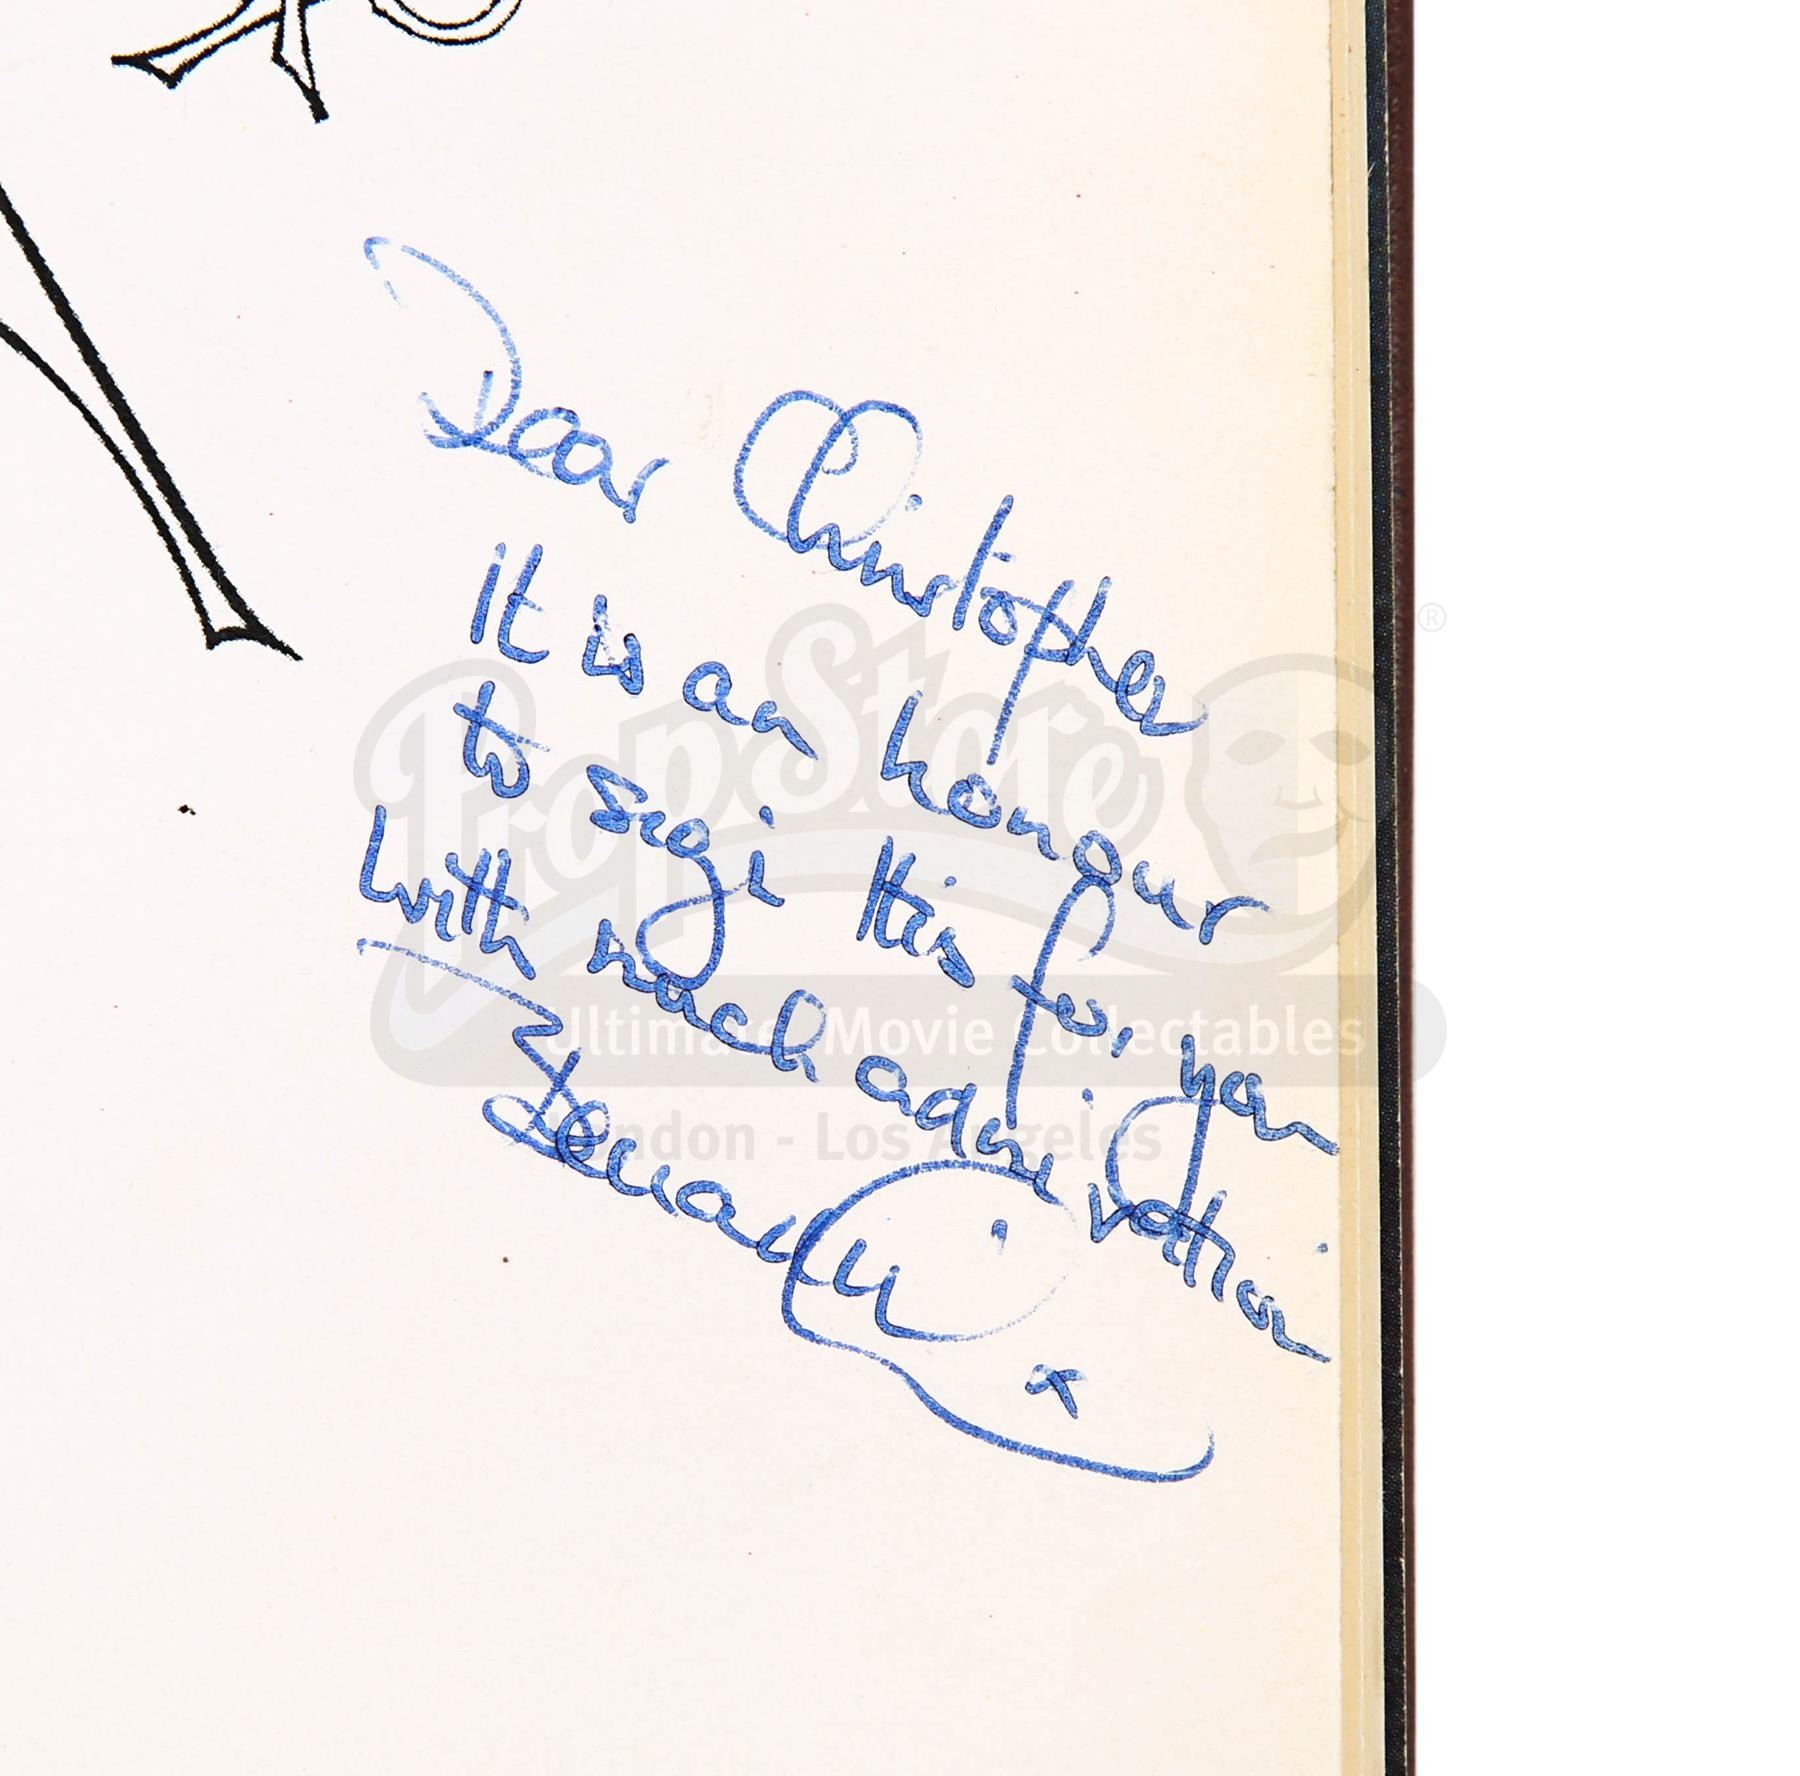 Dear Christopher
It is an honour
to sign this for you
with much admiration
PropStore
®
Ultimate Movie Collectables
London - Los Angeles
x